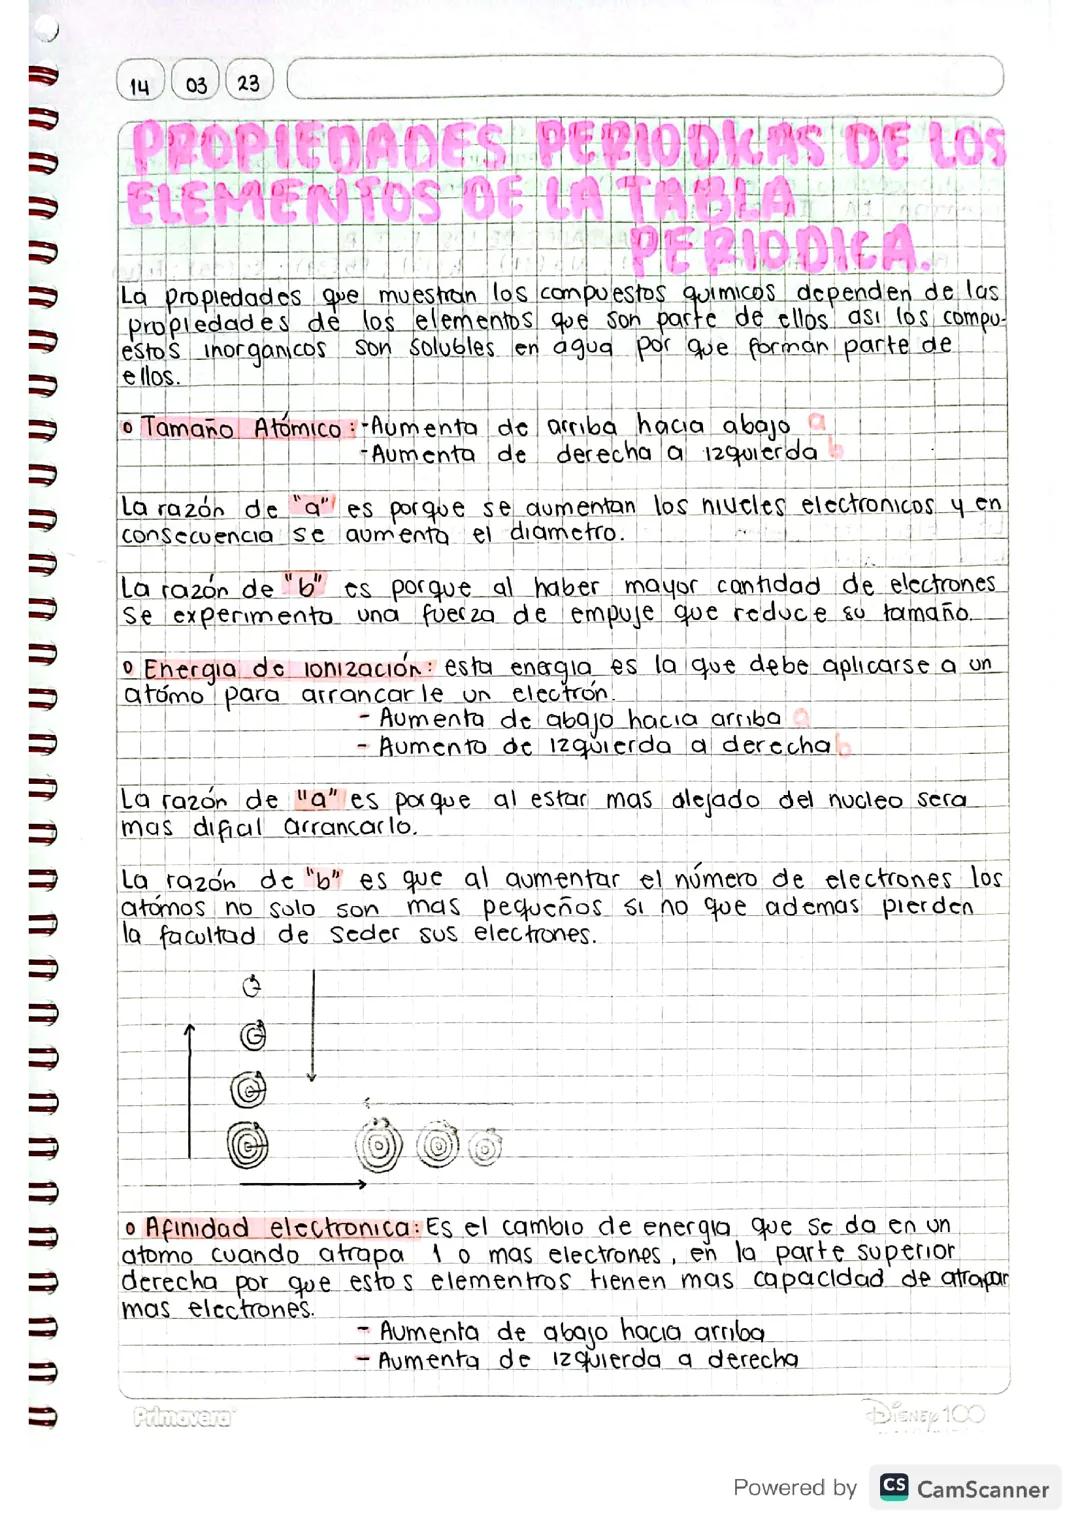 14 03 23
PROPIEDADES PERIODICAS DE LOS
ELEMENTOS DE LA TABLA
PERIODICA.
La propiedades que muestran los compuestos quimicos dependen de las
propiedades de los elementos que son parte de ellos asi los compu-
estos inorganicos son solubles en agua por que forman parte de
ellos.
o Tamaño Atómico: -Aumenta de arriba hacia abajo a
-Aumenta de derecha a izquierda b
La razón de "a" es porque se aumentan los niveles electronicos y en
consecuencia se aumenta el diametro.
La razón de "b" es porque al haber mayor cantidad de electrones
se experimenta una fuerza de empuje que reduce su tamaño.
o Energia de ionización: esta energia es la que debe aplicarse a un
atómo para arrancarle un electrón.
- Aumenta de abajo hacia arriba a
- Aumento de izquierda a derecha b
La razón de "a" es porque al estar mas alejado del nucleo sera
mas dificil arrancarlo.
La razón de "b" es que al aumentar el número de electrones los
atómos no solo son mas pequeños si no que ademas pierden
la facultad de seder sus electrones.
o Afinidad electronica: Es el cambio de energia que se da en un
atomo cuando atrapa 1 o mas electrones, en la parte superior
derecha por que estos elementros tienen mas capacidad de atrapar
mas electrones.
- Aumenta de abajo hacia arriba
- Aumenta de izquierda a derecha
Primavera
Disney 100
Powered by CS CamScanner